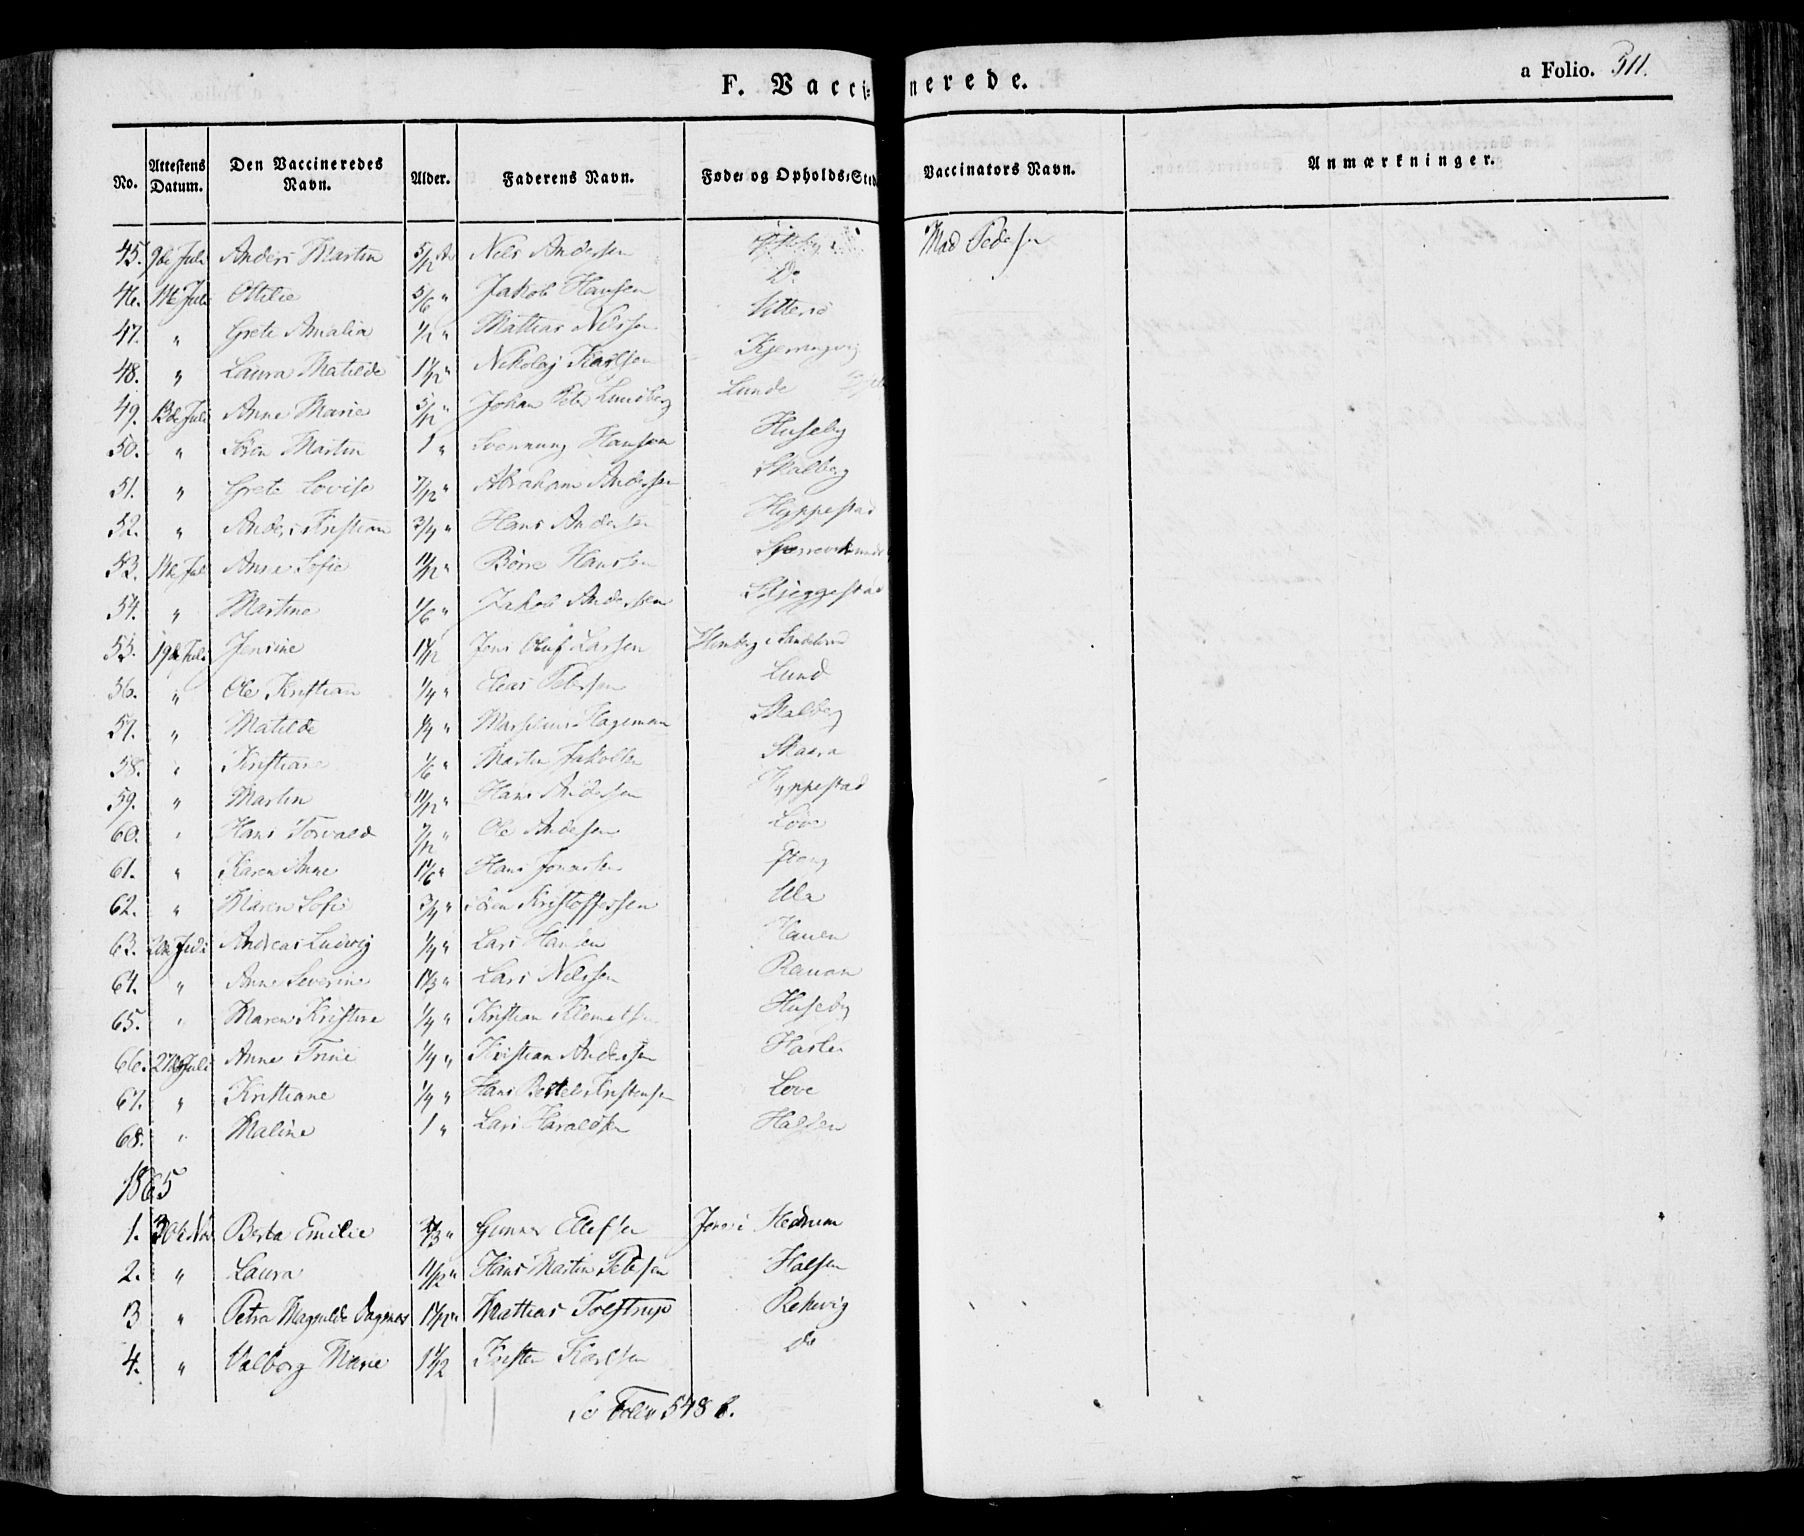 F. Vaccinerede. a Folio. 311.
No. Attestens Datum. Den Vaccineredes Navn. Alder. Faderens Navn. Føde- og Opholds-Sted Vaccinators Navn. Anmærkninger.
45. 9de Juli Anders Martin 5/12 Nils Andersen Mad Pedersen
46. Juli Otilie 5/6 " Jakob Hansen Do
47. " Grete Amalia 1/2 " Mathias Nilsen Vitters
48. " Laura Matilde 1 1/12 " Nikolaj Karlsen Kjerringvig
49. 13de Juli Anne Marie 5/12 " Johan Peter Lundberg Lunde
50. " Søren Martin 1 " Svennung Hansen Huseby
51. " Grete Lovise 7/12 " Abraham Andersen Skalberg
52. " Anders Kristian 3/4 " Hans Andersen Hyppestad
53. Juli Anne Sofie 11/12 " Børre Hansen
54. " Martine 1/6 " Jakob Andersen Skjeggestad
55. 19de Juli Jensine 1 1/12 Jens Oluf Larsen Hemberg i Sandeherred
56. " Ole Kristian 1/4 " Elias Petersen Lund
57. " Matilde 1/4 " Marselius Hageman Skalberg
58. " Kristiane 1/6 " Martin Jakobsen Skaara
59. " Martin 11/12 " Hans Andersen Hyppestad
60. " Hans Torvald 7/12 " Ole Andersen Løve
61. " Karen Anne 1 1/6 " Hans Jonassen
62. " Maren Sofie 3/4 " Søren Kristoffersen Ula
63. Juli Andreas Ludvig 1/4 " Lars Hansen Hauen
64. " Anne Severine 1 1/3 " Lars Nilssen Rauan
65. " Maren Kristine 1/4 " Kristian Klemetsen Huseby
66. 27de Juli Anne Trine 1/4 " Kristian Andersen Hasle
67. " Kristiane 1/4 " Hans Bertel Kristensen Løve
68. " Maline 1 " Lars Haraldsen Halsen
1865
1. 30te Nov Berta Emilie 2/3 " Gunner Ellefsen i Hedrum
2. " Laura 11/12 " Hans Martin Petersen Halsen
3 " Petra Magnilde Dagmar 1 1/12 " Mathias Tolstrup Rekevig
4. " Valborg Marie 1 1/2 Kristen Karlsen do
Folio 548 b.